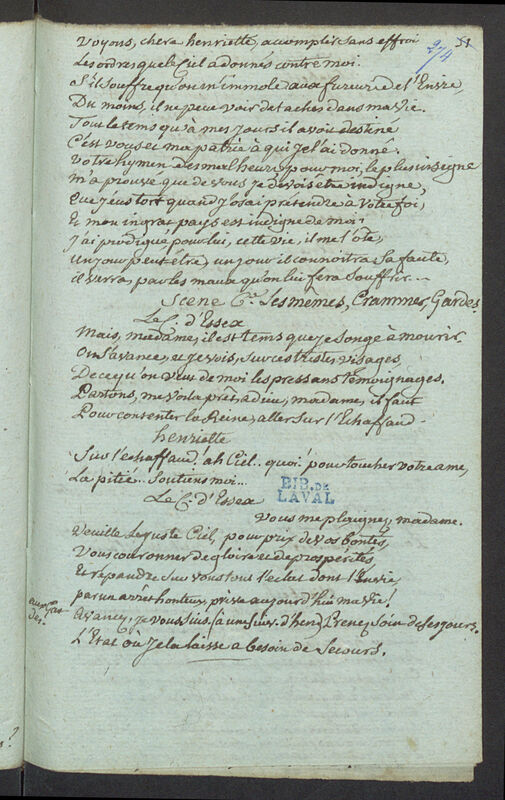 51
274
Voyons, chere henriette, accomplir sans effroi
Les ordres que le Ciel a donnés contre moi.
S'il souffre qu'on m'immole aux fureurs de l'Envie,
Du moins, il ne peut voir de taches dans ma vie.
Tout le tems qu'à mes jours il avoit destiné
C'est vous et ma patrie à qui je l'ai donné.
Votre hymen, des malheurs pour moi, le plus insigne
m'a prouvé que de vous je devois être indigne,
Que j'eus tort quand j'osai prétendre à votre foi,
Et mon ingrat pays est indigne de moi.
J'ai prodigué pour lui, cette vie, il me l'ôte,
Un jour peut être, un jour il connoitra sa faute,
il verra, par les maux qu'on lui fera souffrir...
Scene 6.e Les memes, Crammer, Gardes.
Le C. d'Essex
Mais, madame, il est tems que je songe à mourir.
On s'avance, et je vois, sur ces tristes visages,
De ce qu'on veut de moi les pressans témoignages.
Partons, me voila prêt, adieu, madame, il faut
Pour contenter la Reine, aller sur l'Echaffaud.
henriette
Sur l'echaffaud! ah Ciel.. quoi! pour toucher votre ame,
La pitié.. Soutiens moi...
Le C. d'Essex
Vous me plaignez, madame.
BIB. DE
LAVAL
Veuille le juste Ciel, pour prix de vos bontés,
Vous couronner de gloire et de prosperités,
Et répandre sur vous tout l'eclat dont l'Envie
par un arrêt honteux, prive aujourd'hui ma vie!
aux gar
des.
Avancez, je vous suis. (a une suiv. d'hen.) Prenez soin de ses jours.
L'Etat où je la laisse a besoin de secours.